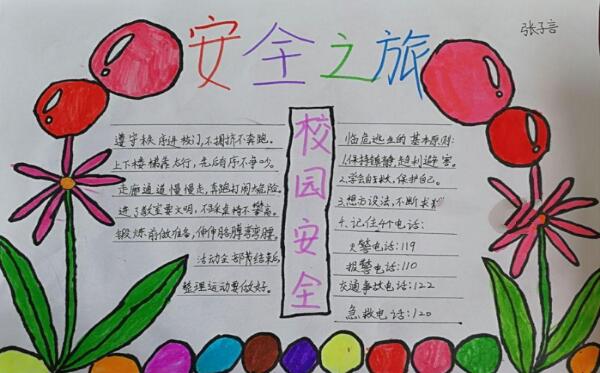 安全之旅
张子言
遵守秩序进校门,不拥挤不奔跑。
上下楼梯靠右行,先后有序不争吵。
走廊通道慢慢走,奔跑打闹有危险。
进了教室要文明,不踩桌椅不攀高。
锻炼前做准备,伸伸胳膊弯弯腰。
活动全部若结束后,
整理运动要做好。
校园安全
临危逃生的基本原则:
1.保持镇静,趋利避害。
2.学会自救,保护自己。
3.想方设法,不断求救
4.记住4个电话:
火警电话:119
报警电话:110
交通事故电话:122
急救电话:120